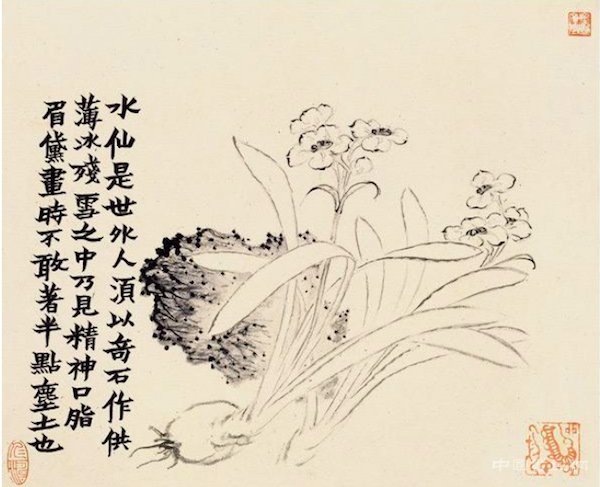 水仙是世外人須以奇石作供
薄冰殘雪之中乃見精神口脂
眉黛畫時不敢著半點塵土也